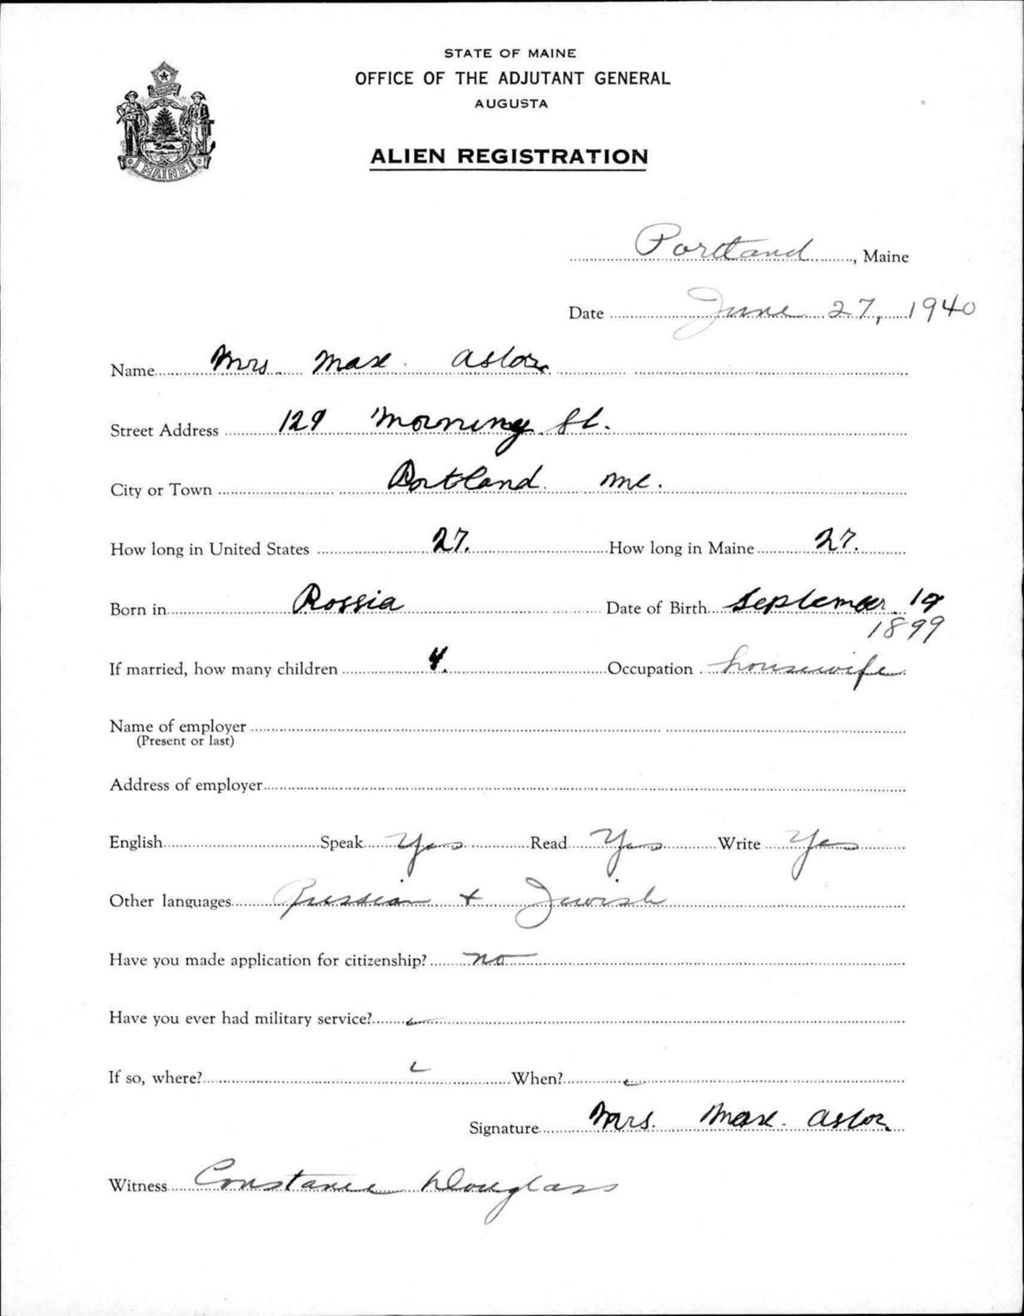 STATE OF MAINE
OFFICE OF THE ADJUTANT GENERAL
AUGUSTA
ALIEN REGISTRATION
MAINE
Portland, Maine
Date June 27, 1940
Name Mrs. Max. Astor
Street Address 129 Morning St.
City or Town Portland Me.
How long in United States 27. How long in Maine 27.
Born in Rossia Date of Birth September 19
1899
If married, how many children 4. Occupation housewife
Name of employer
(Present or last)
Address of employer
English Speak Yes Read Yes Write Yes
Other languages Russian + Jewish
Have you made application for citizenship? no
Have you ever had military service?
If so, where? When?
Signature Mrs. Max. Astor
Witness Constance Douglass